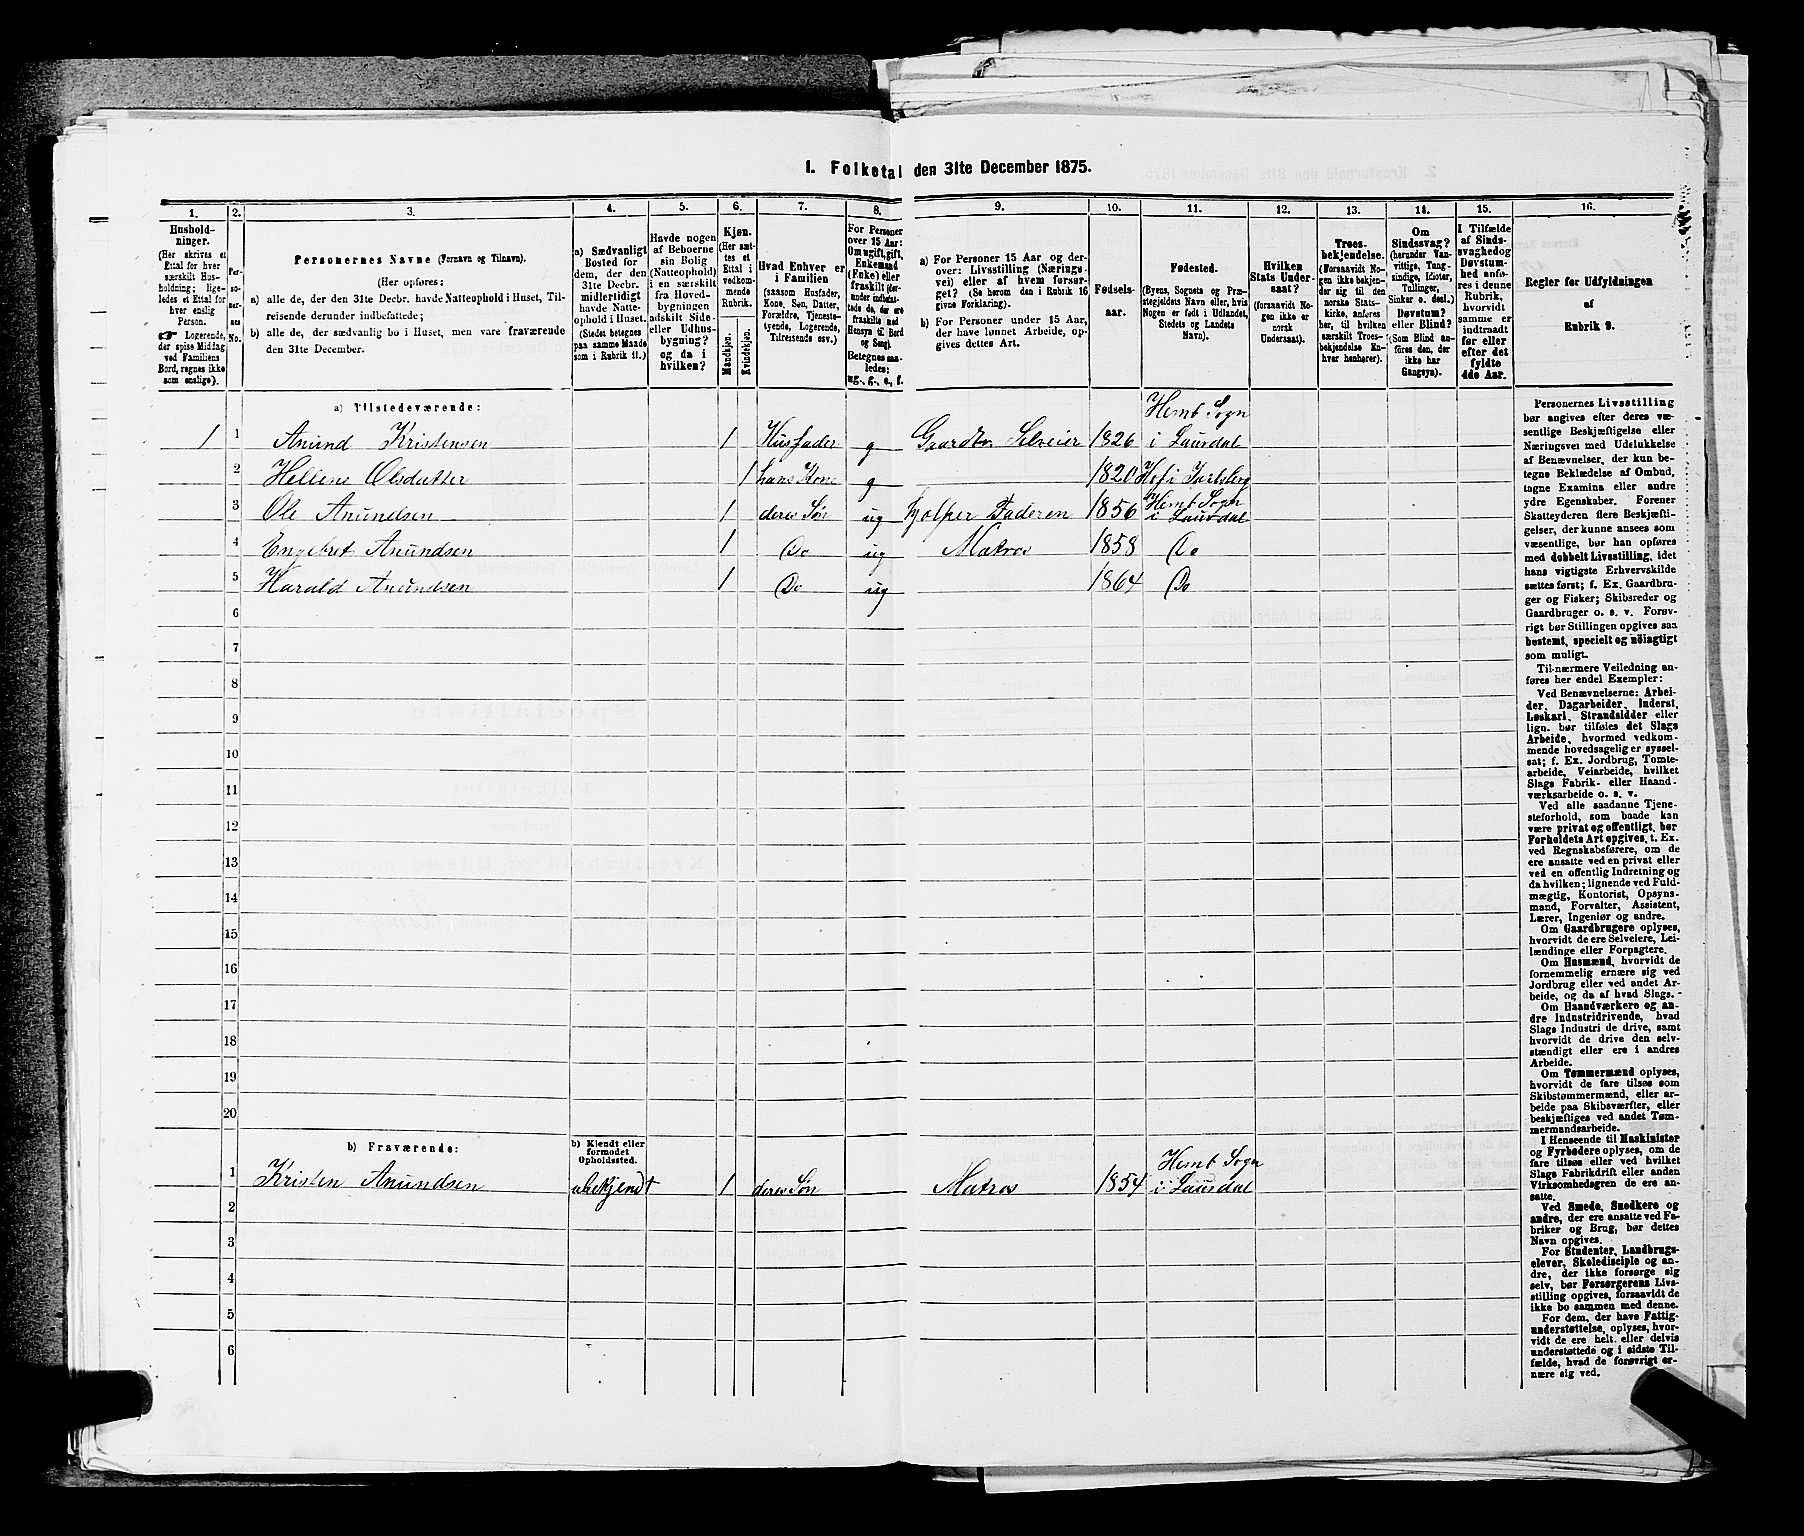 1. Folketal den 31te December 1875.
1. 2. 3. 4. 5. 6. 7. 8. 9. 10. 11. 12. 13. 14. 15. 16.
Hushold-
ninger.
(Her skrives et
Ettal for hver
særskilt Hus-
holdning; lige-
ledes et Ettal for
hver enslig
Person.
☞ Logerende,
der spise Middag
ved Familiens
Bord, regnes ikke
som enslige).
Per-
so-
ner-
nes
No.
Personernes Navne (Fornavn og Tilnavn).
(Her opføres:
a) alle de, der den 31te Decbr. havde Natteophold i Huset, Til-
reisende derunder indbefattede;
b) alle de, der sædvanlig bo i Huset, men vare fraværende
den 31te December.
a) Sædvanligt
Bosted for
dem, der den
31te Decbr.
midlertidigt
havde Natte-
ophold i Huset.
(Stedet betegnes
paa samme Maade
som i Rubrik 11.)
Havde nogen
af Beboerne
sin Bolig
(Natteophold)
i en særskilt
fra Hoved-
bygningen
adskilt Side-
eller Udhus-
bygning?
og da i
hvilken?
Kjøn.
(Her sæt-
tes et
Ettal i
vedkom-
mende
Rubrik.
Mandkjøn.
Kvindekjøn.
Hvad Enhver er
i Familien
(saasom Husfader,
Kone, Søn, Datter,
Forældre, Tjeneste-
tyende, Logerende,
Tilreisende osv.)
For Personer
over 15 Aar:
Om ugift, gift,
Enkemand
(Enke) eller
fraskilt (der-
under indbefat-
tede de, der ere
fraskilte med
Hensyn til Bord
og Seng).
Betegnes saa-
ledes:
ug., g., e., f.
a) For Personer 15 Aar og der-
over: Livsstilling (Nærings-
vei) eller af hvem forsør-
get? (Se herom den i Rubrik 16
givne Forklaring).
b) For Personer under 15 Aar,
der have lønnet Arbeide, op-
gives dettes Art.
Fødsels-
aar.
Fødested.
(Byens, Sognets og Præ-
stegjeldets Navn eller, hvis
Nogen er født i Udlandet,
Stedets og Landets
Navn).
Hvilken
Stats Under-
saat?
(forsaavidt No-
gen ikke er
norsk
Undersaat).
Troes-
bekjendelse.
(Forsaavidt No-
gen ikke bekjen-
der sig til den
norske Stats-
kirke, anføres
her, til hvilken
særskilt Troes-
bekjendelse En-
hver henhører).
Om
Sindssvag?
(herunder Van-
vittige, Tung-
sindige, Idioter,
Tullinger,
Sinker o. desl.)
Døvstum?
eller Blind?
(Som Blind an-
føres den, der
ikke har
Gangsyn).
I Tilfælde
af Sinds-
svaghed og
Døvstum-
hed anfø-
res i denne
Rubrik,
hvorvidt
samme er
indtraadt
før eller
efter det
fyldte
4de Aar.
Regler for Udfyldningen
af
Rubrik 9.
a) Tilstedeværende:
Hemb Sogn
1 1 Anund Kristensen 1 Husfader g Gaardbr. Selveier 1826 i Laurdal
2 Hellene Olsdatter 1 hans Kone g 1820 Hof i Jarlsberg
Hemb Sogn
3 Ole Anundsen 1 deres Søn ug hjælper Faderen 1856 i Laurdal
4 Engebret Anundsen 1 Do ug Matros 1858 Do
5 Harald Anundsen 1 Do ug 1864 Do
6
7
8
9
10
11
12
13
14
15
16
17
18
19
20
b) Fraværende:
b) Kjendt eller
formodet
Opholdssted.
Hemb Sogn
1 Kristen Anundsen ubekjendt 1 deres Søn Matros 1854 i Laurdal
2
3
4
5
6
Personernes Livsstilling
bør angives efter deres væ-
sentlige Beskjæftigelse eller
Næringsvei med Udelukkelse
af Benævnelser, der kun be-
tegne Beklædelse af Ombud,
tagne Examina eller andre
ydre Egenskaber. Forener
Skatteyderen flere Beskjæfti-
gelser, der kunne ansees som
væsentlige, bør han opføres
med dobbelt Livsstilling, idet
hans vigtigste Erhvervskilde
sættes først; f. Ex. Gaardbru-
ger og Fisker; Skibsreder og
Gaardbruger o. s. v. Forøv-
rigt bør Stillingen opgives saa
bestemt, specielt og nøiagtigt
som muligt.
Til nærmere Veiledning an-
føres her endel Exempler:
Ved Benævnelserne: Arbei-
der, Dagarbeider, Inderst,
Løskarl, Strandsidder eller
lign. bør tilføies det Slags
Arbeide, hvormed vedkom-
mende hovedsagelig er syssel-
sat; f. Ex. Jordbrug, Tomte-
arbeide, Veiarbeide, hvilket
Slags Fabrik- eller Haand-
værksarbeide o. s. v.
Ved alle saadanne Tjene-
steforhold, som baade kan
være privat og offentligt, bør
Forholdets Art opgives, t. Ex.
ved Regnskabsførere, om de
ere ansatte ved en privat eller
ved en offentlig Indretning og
da hvilken; lignende ved Fuld-
mægtig, Kontorist, Opsyns-
mand, Forvalter, Assistent,
Lærer, Ingeniør og andre.
Om Gaardbrugere oplyses,
hvorvidt de ere Selveiere, Lei-
lændinge eller Forpagtere.
Om Husmænd, hvorvidt de
fornemmelig ernære sig ved
Jordbrug eller ved andet Ar-
beide, og da af hvad Slags.
Om Haandværkere og an-
dre Industridrivende, hvad
Slags Industri de drive, samt
hvorvidt de drive den selv-
stændigt eller ere i andres
Arbeide.
Om Tømmermænd oplyses,
hvorvidt de fare tilsøs som
Skibstømmermænd, eller ar-
beide paa Skibsværfter, eller
beskjæftiges ved andet Tøm-
mermandsarbeide.
I Henseende til Maskinister
og Fyrbødere oplyses, om de
fare tilsøs eller ved hvilket
Slags Fabrikdrift eller anden
Virksomhedsgren de ere an-
satte.
Ved Smede, Snedkere og
andre, der ere ansatte ved Fa-
briker og Brug, bør dettes
Navn opgives.
For Studenter, Landbrugs-
elever, Skoledisciple og an-
dre, der ikke forsørge sig
selv, bør Forsørgerens Livs-
stilling opgives, forsaavidt de
ikke bo sammen med denne.
For dem, der have Fattig-
understøttelse, oplyses, hvor-
vidt de ere helt eller delvis
understøttede og i sidste Til-
fælde, hvad de forøvrigt er-
nære sig ved.